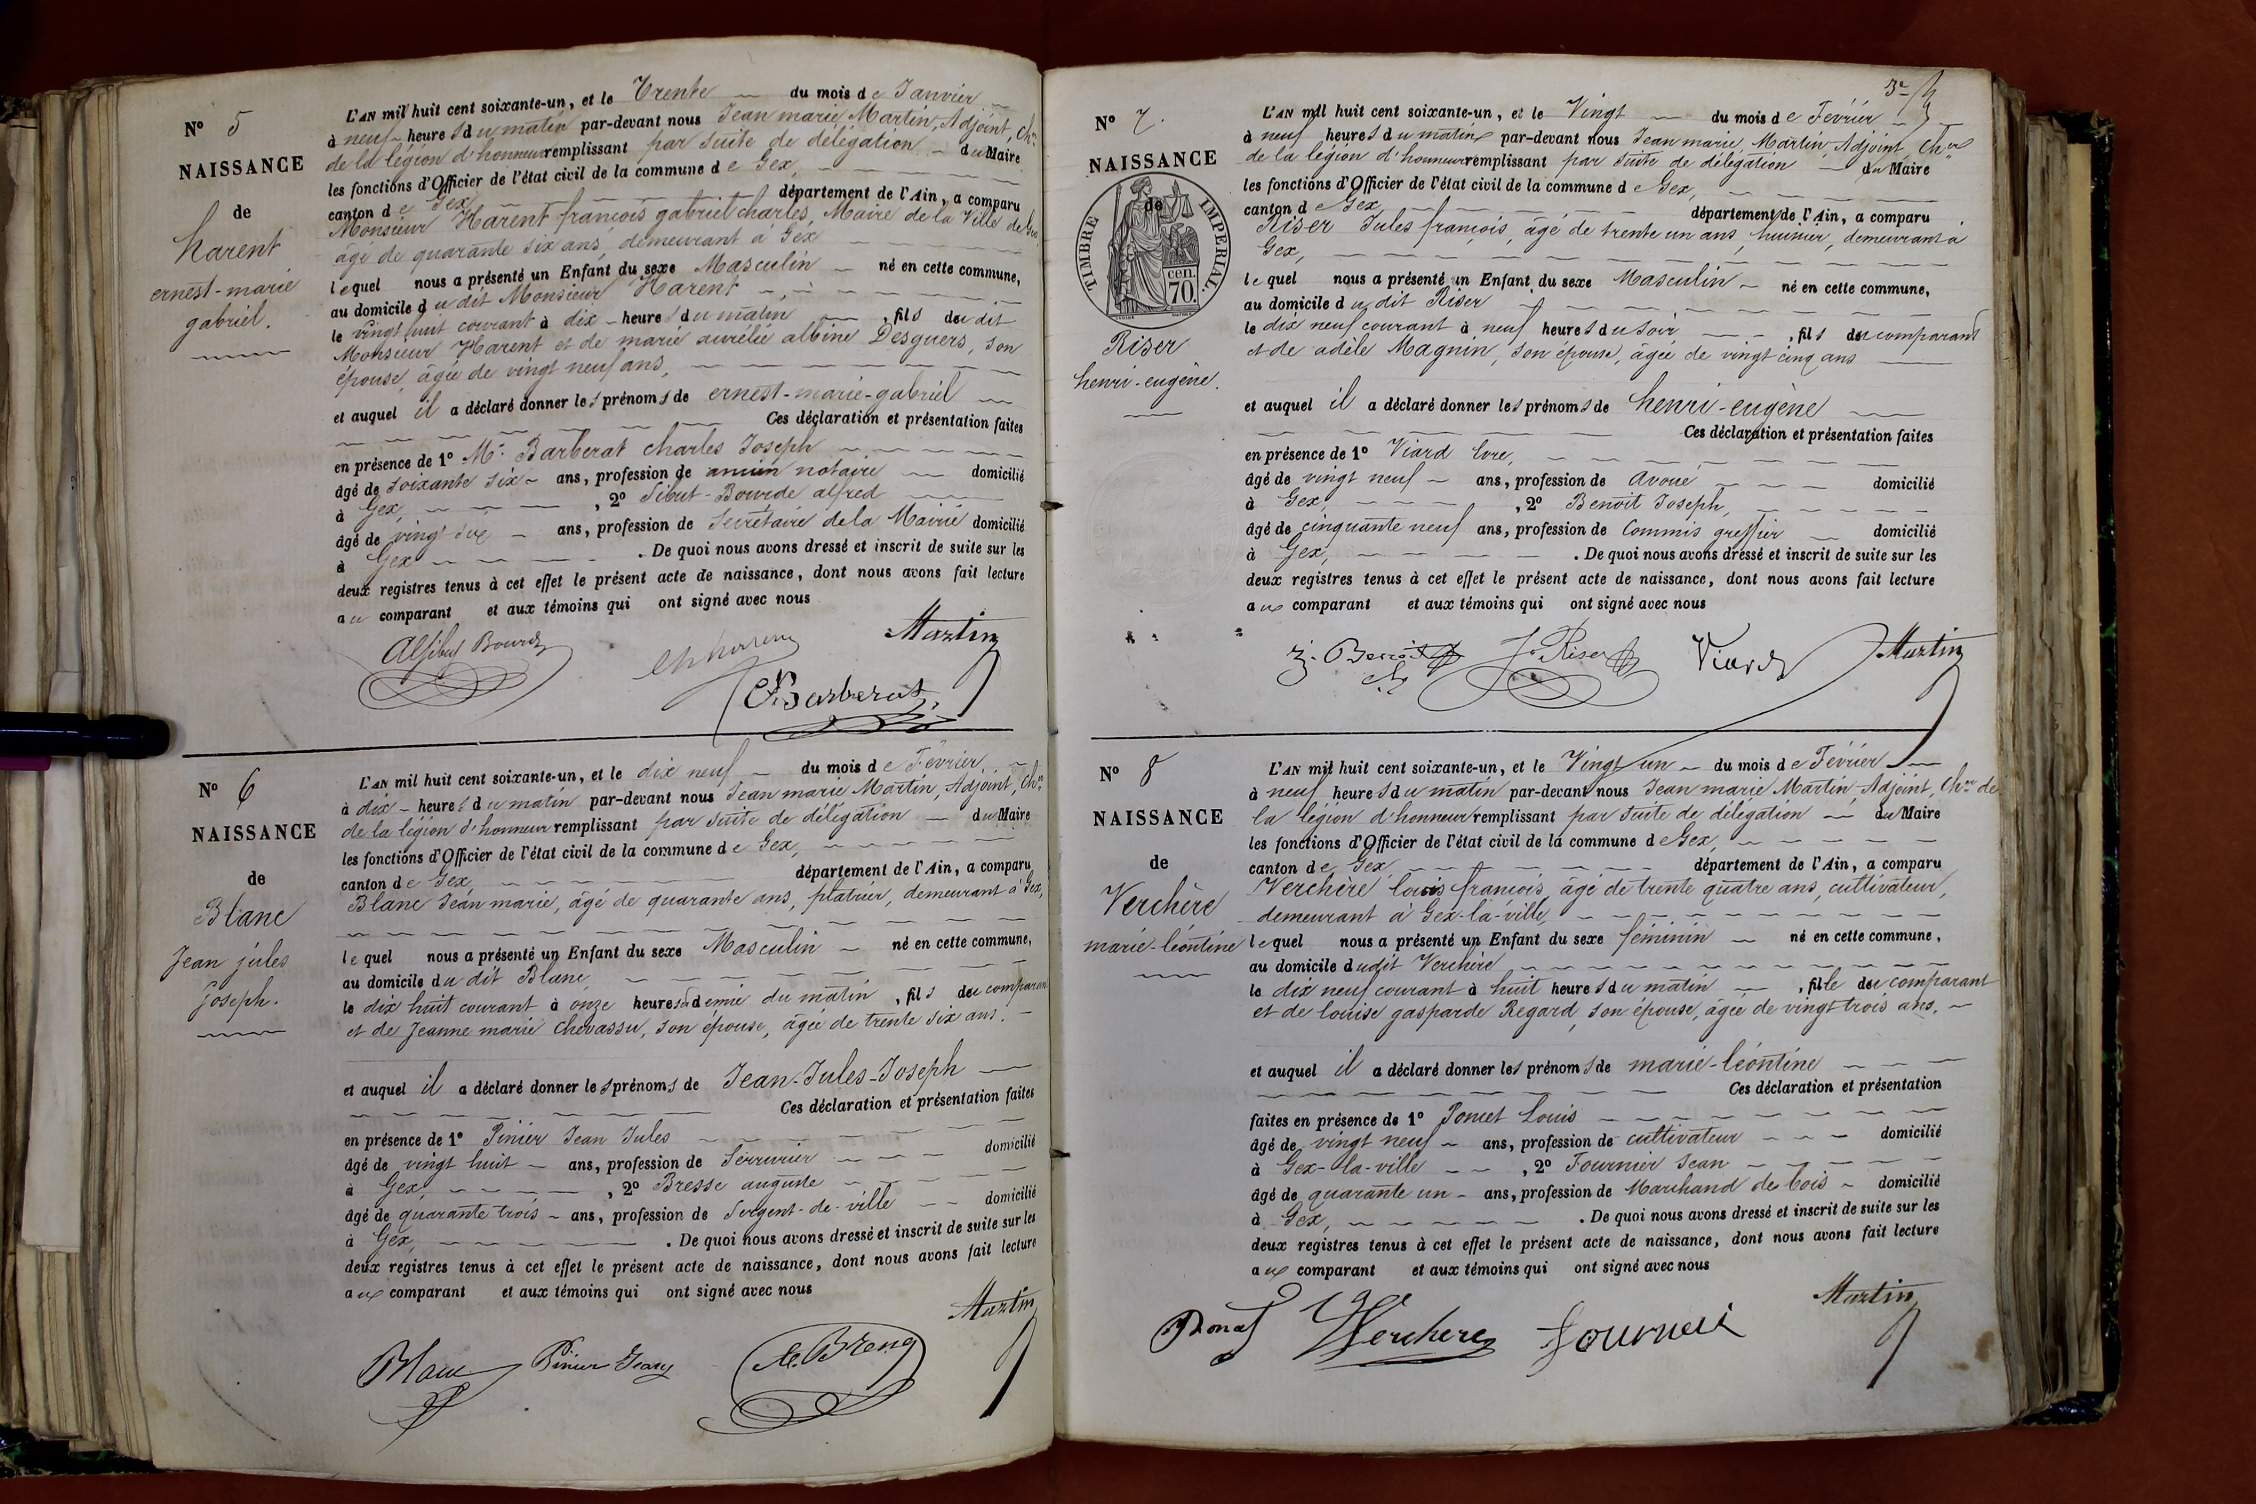 N° 5
NAISSANCE
de
harent
ernest-marie
gabriel.
L'AN mil huit cent soixante-un, et le Trente du mois de Janvier
à neuf heures du matin par-devant nous Jean marie Martin, Adjoint, Chr
de la légion d'honneur remplissant par suite de délégation du Maire
les fonctions d'Officier de l'état civil de la commune de Gex,
canton de Gex département de l'Ain, a comparu
Monsieur Harent françois gabriel charles, Maire de la Ville de Gex
âgé de quarante six ans, demeurant à Gex
lequel nous a présenté un Enfant du sexe Masculin né en cette commune,
au domicile du dit Monsieur Harent
le vingt huit courant à dix heures du matin , fils du dit
Monsieur Harent et de marie aurélie albine Desguers, son
épouse, âgée de vingt neuf ans,
et auquel il a déclaré donner les prénoms de ernest-marie-gabriel
Ces déclaration et présentation faites
en présence de 1° Mr Barberat charles Joseph
âgé de soixante six ans, profession de ancien notaire domicilié
à Gex , 2° Sibut-Bourde alfred
âgé de vingt six ans, profession de Secrétaire de la Mairie domicilié
à Gex . De quoi nous avons dressé et inscrit de suite sur les
deux registres tenus à cet effet le présent acte de naissance, dont nous avons fait lecture
au comparant et aux témoins qui ont signé avec nous
Martin
Barberat
N° 6
NAISSANCE
de
Blanc
Jean jules
Joseph.
L'AN mil huit cent soixante-un, et le dix neuf du mois de Février
à dix heures du matin par-devant nous Jean marie Martin, Adjoint, Chr
de la légion d'honneur remplissant par suite de délégation du Maire
les fonctions d'Officier de l'état civil de la commune de Gex,
canton de Gex département de l'Ain, a comparu
Blanc Jean marie, âgé de quarante ans, platrier, demeurant à Gex,
lequel nous a présenté un Enfant du sexe Masculin né en cette commune,
au domicile du dit Blanc,
le dix huit courant à onze heures & demie du matin , fils du comparant
et de Jeanne marie Chevassu, son épouse, âgée de trente six ans.
et auquel il a déclaré donner les prénoms de Jean-Jules-Joseph
Ces déclaration et présentation faites
en présence de 1° Pinier Jean Jules
âgé de vingt huit ans, profession de Serrurier domicilié
à Gex, , 2° Bresse auguste
âgé de quarante trois ans, profession de Sergent-de-ville domicilié
à Gex, . De quoi nous avons dressé et inscrit de suite sur les
deux registres tenus à cet effet le présent acte de naissance, dont nous avons fait lecture
aux comparant et aux témoins qui ont signé avec nous
Martin
Blanc Pinier Jean
3e
N° 7.
NAISSANCE
de
TIMBRE IMPERIAL.
cen.
70.
Riser
henri-eugène.
L'AN mil huit cent soixante-un, et le Vingt du mois de Février
à neuf heures du matin par-devant nous Jean marie Martin, Adjoint, Chr
de la légion d'honneur remplissant par suite de délégation du Maire
les fonctions d'Officier de l'état civil de la commune de Gex,
canton de Gex département de l'Ain, a comparu
Riser Jules françois, âgé de trente un ans, huissier, demeurant à
Gex,
lequel nous a présenté un Enfant du sexe Masculin né en cette commune,
au domicile du dit Riser
le dix neuf courant à neuf heures du soir , fils du comparant
et de adèle Magnin, son épouse, âgée de vingt cinq ans
et auquel il a déclaré donner les prénoms de henri-eugène
Ces déclaration et présentation faites
en présence de 1° Viard
âgé de vingt neuf ans, profession de Avoué domicilié
à Gex, , 2° Benoit Joseph,
âgé de cinquante neuf ans, profession de Commis greffier domicilié
à Gex, . De quoi nous avons dressé et inscrit de suite sur les
deux registres tenus à cet effet le présent acte de naissance, dont nous avons fait lecture
aux comparant et aux témoins qui ont signé avec nous
J. Benoit J. Riser Viard Martin
N° 8
NAISSANCE
de
Verchère
marie-léontine
L'AN mil huit cent soixante-un, et le Vingt un du mois de Février
à neuf heures du matin par-devant nous Jean marie Martin Adjoint, Chr de
la légion d'honneur remplissant par suite de délégation du Maire
les fonctions d'Officier de l'état civil de la commune de Gex,
canton de Gex département de l'Ain, a comparu
Verchère louis françois, âgé de trente quatre ans, cultivateur,
demeurant à Gex-la-ville,
lequel nous a présenté un Enfant du sexe féminin né en cette commune,
au domicile dudit Verchère
le dix neuf courant à huit heures du matin , fille du comparant
et de louise gasparde Regard, son épouse, âgée de vingt trois ans.
et auquel il a déclaré donner les prénoms de marie-léontine
Ces déclaration et présentation
faites en présence de 1° Poncet Louis
âgé de vingt neuf ans, profession de cultivateur domicilié
à Gex-la-ville , 2° Fournier Jean
âgé de quarante un ans, profession de Marchand de bois domicilié
à Gex, . De quoi nous avons dressé et inscrit de suite sur les
deux registres tenus à cet effet le présent acte de naissance, dont nous avons fait lecture
aux comparant et aux témoins qui ont signé avec nous
Martin
Verchere